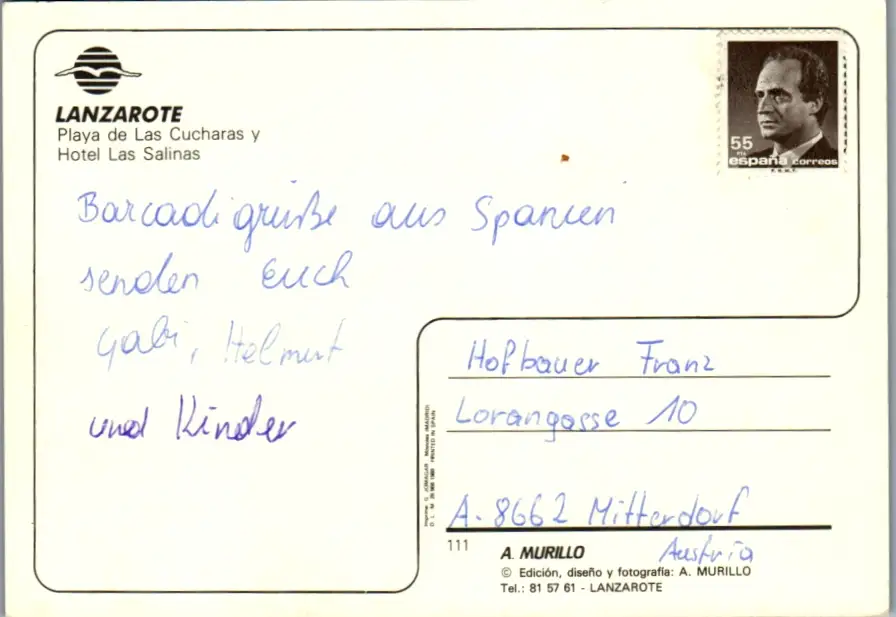 LANZAROTE
Playa de Las Cucharas y
Hotel Las Salinas
55
PTA
españa correos
F.N.M.T.
Barcadi grüße aus Spanien
senden Euch
Gabi, Helmut
und Kinder
Hofbauer Franz
Lorangasse 10
A-8662 Mitterdorf
Austria
111
A. MURILLO
© Edición, diseño y fotografía: A. MURILLO
Tel.: 81 57 61 - LANZAROTE
PRINTED IN SPAIN